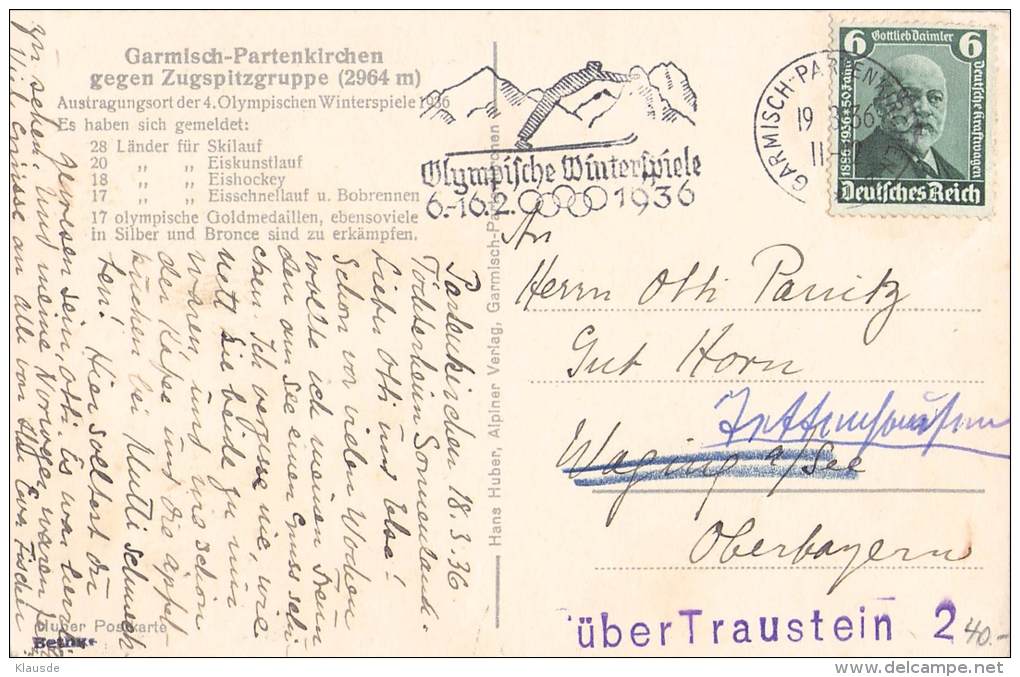 Garmisch-Partenkirchen
gegen Zugspitzgruppe (2964 m)
Austragungsort der 4. Olympischen Winterspiele 1936
Es haben sich gemeldet:
28 Länder für Skilauf
20 „ „ Eiskunstlauf
18 „ „ Eishockey
17 „ „ Eisschnellauf u. Bobrennen
17 olympische Goldmedaillen, ebensoviele
in Silber und Bronce sind zu erkämpfen.
Partenkirchen 18.3.36
Töchterheim Sonnenland.
Liebe Otti und Else!
Schon vor vielen Wochen
wollte ich meinen Freun
den am See einen Gruss schi
cken. Ich vergesse nie, wie
nett Sie beide zu mir
waren, und uns schon
der Käse und die Äpfel
kuchen bei Mutti schmeck
ten! Hier solltest du
gewesen sein, Otti. Es war herr
zu sehen. Und meine Norweger waren
Viele Grüsse an alle von Eva Fischer
Huber Postkarte
Hans Huber, Alpiner Verlag, Garmisch-Partenkirchen
Olympische Winterspiele
6.-16.2. 1936
GARMISCH-PARTENKIRCHEN
19 3 36
11-12
6 Gottlieb Daimler 6
1886-1936 * 50 Jahre
Deutsche Kraftwagen
Deutsches Reich
An
Herrn Otti Panitz
Gut Horn
Tettenhausen
Waging a/See
Oberbayern
über Traustein 2
40.-
Klausde
delcampe.net